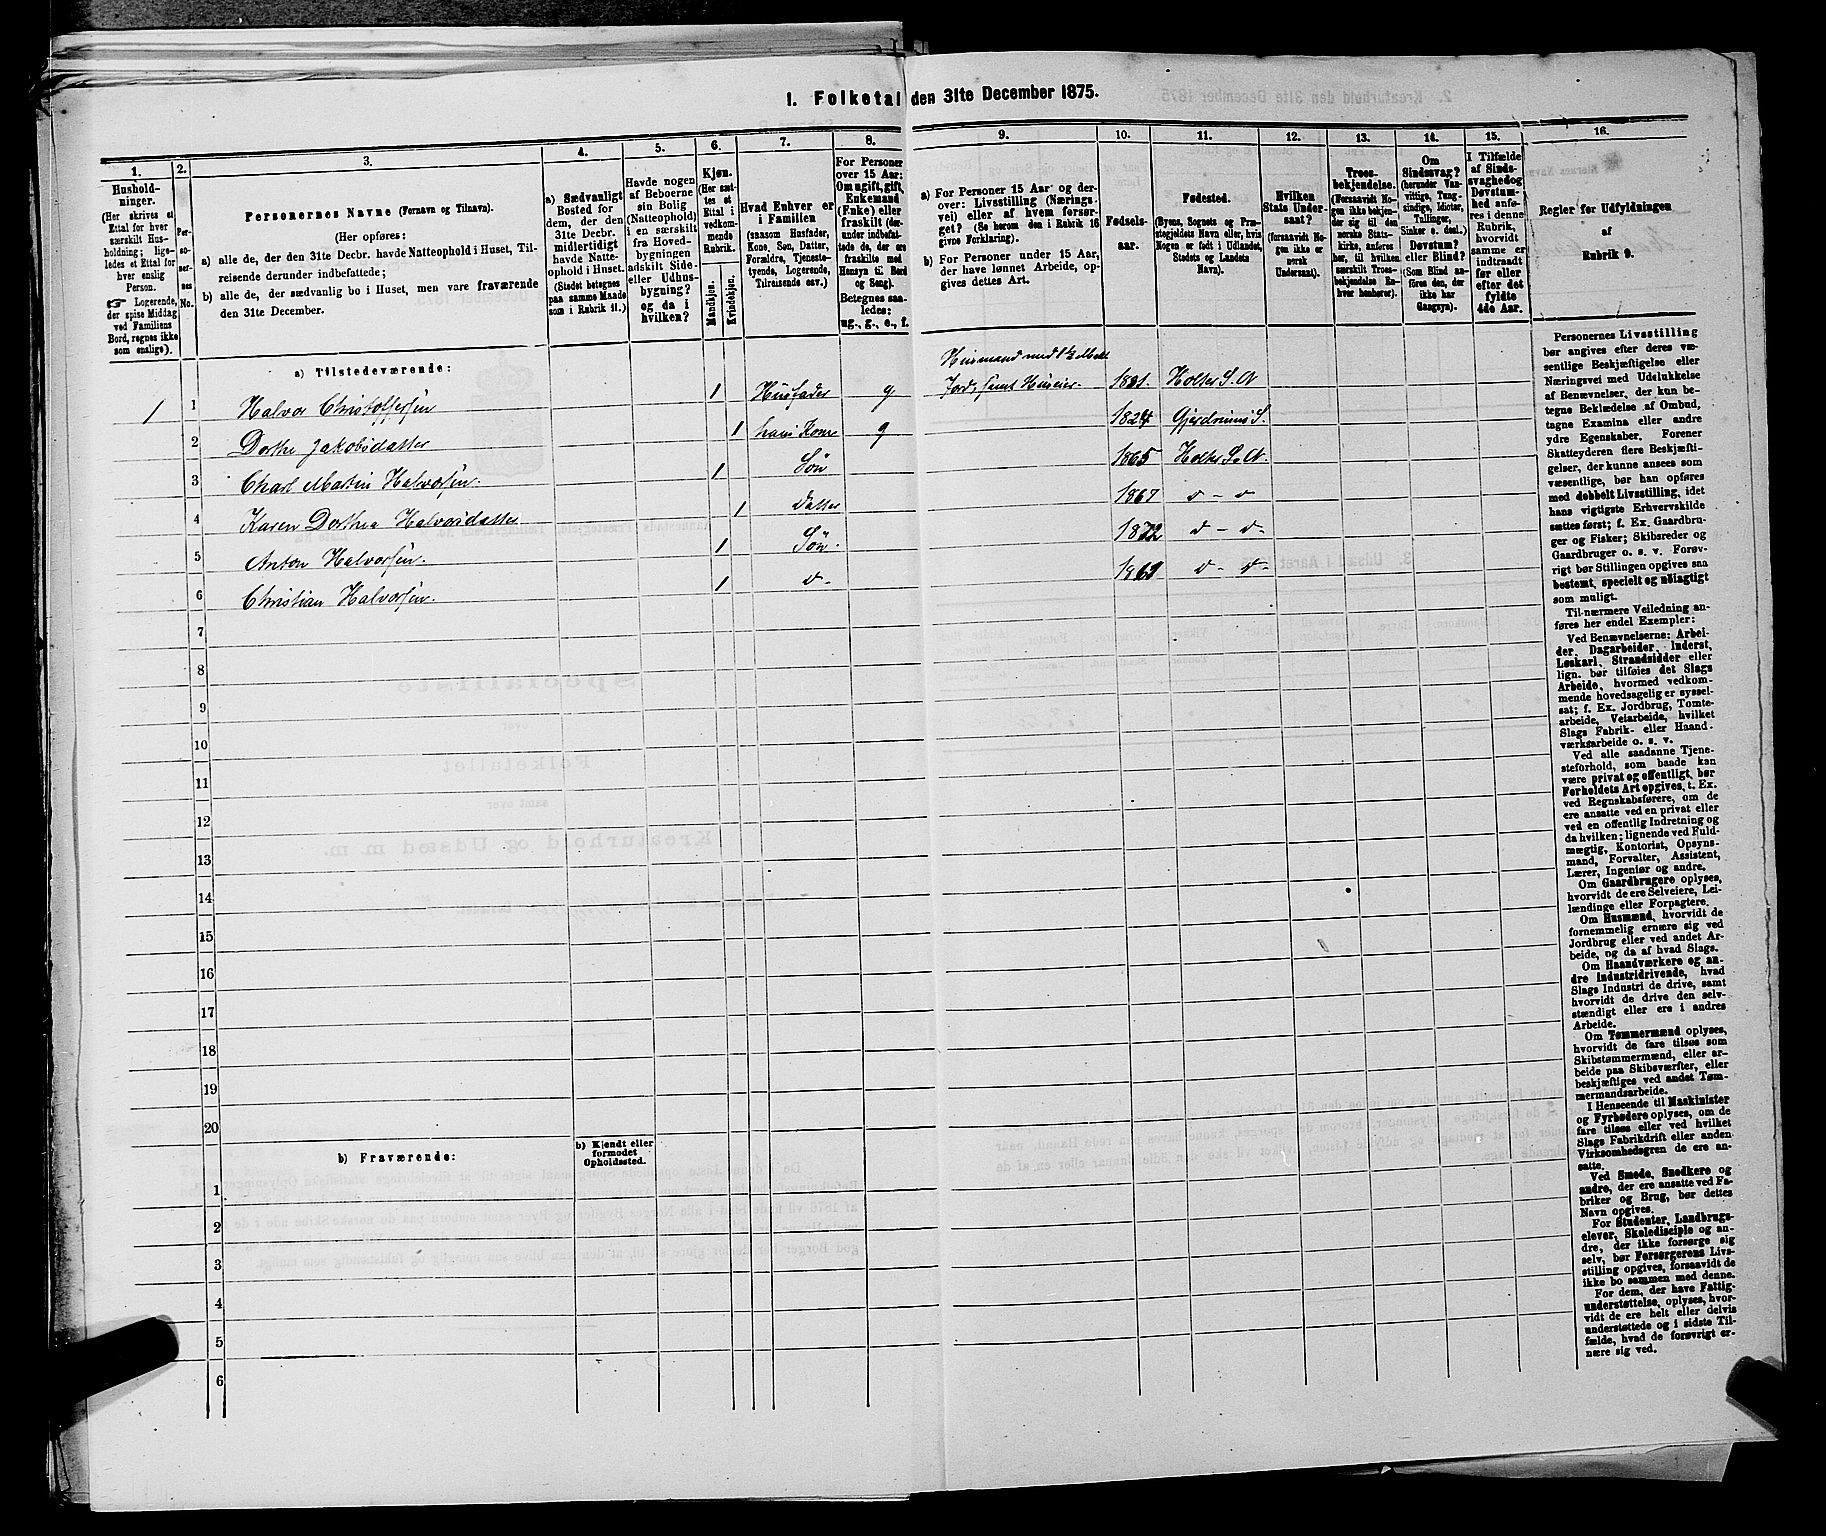 1. Folketal den 31te December 1875.
1.
Husholdninger.
(Her skrives et
Ettal for hver
særskilt Husholdning;
ligeledes et Ettal for
hver enslig
Person.
☞ Logerende,
der spise Middag
ved Familiens
Bord, regnes ikke
som enslige).
2.
Personernes
No.
3.
Personernes Navne (Fornavn og Tilnavn).
(Her opføres:
a) alle de, der den 31te Decbr. havde Natteophold i Huset, Tilreisende derunder indbefattede;
b) alle de, der sædvanlig bo i Huset, men vare fraværende
den 31te December.
4.
a) Sædvanligt
Bosted for
dem, der den
31te Decbr.
midlertidigt
havde Natteophold
i Huset.
(Stedet betegnes
paa samme Maade
som i Rubrik 11.)
5.
Havde nogen
af Beboerne
sin Bolig
(Natteophold)
i en særskilt
fra Hovedbygningen
adskilt Side-
eller Udhusbygning?
og da i
hvilken?
6.
Kjøn.
(Her sættes
et
Ettal i
vedkommende
Rubrik.
Mandkjøn.
Kvindekjøn.
7.
Hvad Enhver er
i Familien
(saasom Husfader,
Kone, Søn, Datter,
Forældre, Tjenestetyende,
Logerende,
Tilreisende osv.).
8.
For Personer
over 15 Aar:
Om ugift, gift,
Enkemand
(Enke) eller
fraskilt (derunder
indbefattede
de, der ere
fraskilte med
Hensyn til Bord
og Seng).
Betegnes saaledes:
ug., g., e., f.
9.
a) For Personer 15 Aar og derover:
Livsstilling (Næringsvei)
eller af hvem forsørget?
(Se herom den i Rubrik 16
givne Forklaring).
b) For Personer under 15 Aar,
der have lønnet Arbeide, opgives
dettes Art.
10.
Fødselsaar.
11.
Fødested.
(Byens, Sognets og Præstegjeldets
Navn eller, hvis
Nogen er født i Udlandet,
Stedets og Landets
Navn).
12.
Hvilken
Stats Undersaat?
(forsaavidt Nogen
ikke er
norsk
Undersaat).
13.
Troesbekjendelse.
(Forsaavidt Nogen
ikke bekjender
sig til den
norske Statskirke,
anføres
her, til hvilken
særskilt Troesbekjendelse
Enhver
henhører).
14.
Om
Sindssvag?
(herunder Vanvittige,
Tungsindige,
Idioter,
Tullinger,
Sinker o. desl.).
Døvstum?
eller Blind?
(Som Blind anføres
den, der
ikke har
Gangsyn).
15.
I Tilfælde
af Sindssvaghed
og
Døvstumhed
anføres
i denne
Rubrik,
hvorvidt
samme er
indtraadt
før eller
efter det
fyldte
4de Aar.
16.
Regler for Udfyldningen
af
Rubrik 9.
a) Tilstedeværende:
1 1 Halvor Christoffersen 1 Husfader g Husmand med 1½ Jord samt Huseier 1821. Holter S. A
2 Dorthe Jakobsdatter 1 hans Kone g 1824 Gjerdrums S.
3 Charl Martin Halvorsen. 1 Søn 1865 Holter S. A.
4 Karen Dorthea Halvorsdatter 1 Datter 1867 d - d
5 Anton Halvorsen. 1 Søn. 1872 d - d-
6 Christian Halvorsen. 1 d- 1869 d- d-
7
8
9
10
11
12
13
14
15
16
17
18
19
20
b) Fraværende:
b) Kjendt eller
formodet
Opholdssted.
1
2
3
4
5
6
Personernes Livsstilling
bør angives efter deres væsentlige
Beskjæftigelse eller
Næringsvei med Udelukkelse
af Benævnelser, der kun betegne
Beklædelse af Ombud,
tagne Examina eller andre
ydre Egenskaber. Forener
Skatteyderen flere Beskjæftigelser,
der kunne ansees som
væsentlige, bør han opføres
med dobbelt Livsstilling, idet
hans vigtigste Erhvervskilde
sættes først; f. Ex. Gaardbruger
og Fisker; Skibsreder og
Gaardbruger o. s. v. Forøvrigt
bør Stillingen opgives saa
bestemt, specielt og nøiagtigt
som muligt.
Til nærmere Veiledning anføres
her endel Exempler:
Ved Benævnelserne: Arbeider,
Dagarbeider, Inderst,
Løskarl, Strandsidder eller
lign. bør tilføies det Slags
Arbeide, hvormed vedkommende
hovedsagelig er sysselsat;
f. Ex. Jordbrug, Tomtearbeide,
Veiarbeide, hvilket
Slags Fabrik- eller Haandværksarbeide
o. s. v.
Ved alle saadanne Tjenesteforhold,
som baade kan
være privat og offentligt, bør
Forholdets Art opgives, t. Ex.
ved Regnskabsførere, om de
ere ansatte ved en privat eller
ved en offentlig Indretning og
da hvilken; lignende ved Fuldmægtig,
Kontorist, Opsynsmand,
Forvalter, Assistent,
Lærer, Ingeniør og andre.
Om Gaardbrugere oplyses,
hvorvidt de ere Selveiere, Leilændinge
eller Forpagtere.
Om Husmænd, hvorvidt de
fornemmelig ernære sig ved
Jordbrug eller ved andet Arbeide,
og da af hvad Slags.
Om Haandværkere og andre
Industridrivende, hvad
Slags Industri de drive, samt
hvorvidt de drive den selvstændigt
eller ere i andres
Arbeide.
Om Tømmermænd oplyses,
hvorvidt de fare tilsøs som
Skibstømmermænd, eller arbeide
paa Skibsværfter, eller
beskjæftiges ved andet Tømmermandsarbeide.
I Henseende til Maskinister
og Fyrbødere oplyses, om de
fare tilsøs eller ved hvilket
Slags Fabrikdrift eller anden
Virksomhedsgren de ere ansatte.
Ved Smede, Snedkere og
andre, der ere ansatte ved Fabriker
og Brug, bør dettes
Navn opgives.
For Studenter, Landbrugselever,
Skoledisciple og andre,
der ikke forsørge sig
selv, bør Forsørgerens Livsstilling
opgives, forsaavidt de
ikke bo sammen med denne.
For dem, der have Fattigunderstøttelse,
oplyses, hvorvidt
de ere helt eller delvis
understøttede og i sidste Tilfælde,
hvad de forøvrigt ernære
sig ved.